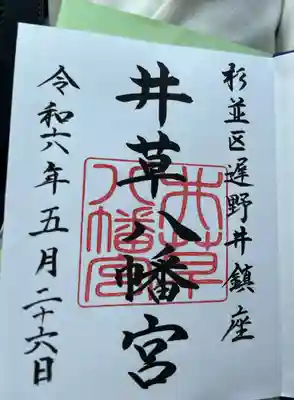 杉並区遅野井鎮座
井草八幡宮
井草八幡宮
令和六年五月二十六日